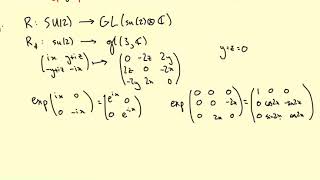 R: SU(2) → GL(su(2)⊗ℂ)
R_*: su(2) → gl(3,ℂ)   y=z=0
(ix  y+iz ; -y+iz  -ix) ↦ (0  -2z  2y ; 2z  0  -2x ; -2y  2x  0)
exp(ix  0 ; 0  -ix) = (e^{ix}  0 ; 0  e^{-ix})   exp(0  0  0 ; 0  0  -2x ; 0  2x  0) = (1  0  0 ; 0  cos2x  -sin2x ; 0  sin2x  cos2x)